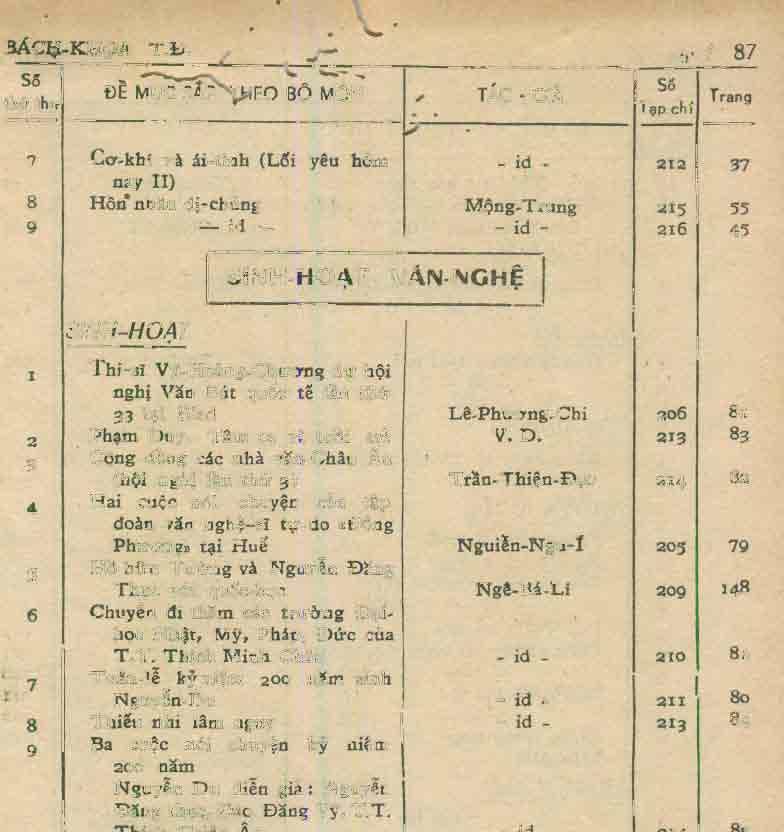 BÁCH-KHOA T.Đ. 87
Số ĐỀ MỤC THEO BỘ MÔN TÁC-GIẢ Số Trang
thứ-tự Tạp chí
7 Cơ-khí và ái-tình (Lối yêu hôm - id - 212 37
nay II)
8 Hôn nhân dị-chủng Mộng-Trung 215 55
9 — id — - id - 216 45
SINH-HOẠT VĂN-NGHỆ
SINH-HOẠT
1 Thi-sĩ Vũ-Hoàng-Chương dự hội
nghị Văn Bút quốc tế lần thứ
33 tại Lê-Phương-Chi 206
2 Phạm Duy. V. D. 213 83
3 Cộng đồng các nhà văn Châu Âu
(hội nghị lần thứ Trần-Thiện-Đạo 214
4 Hai cuộc nói chuyện của tập
đoàn văn nghệ-sĩ tự do Đông
Phương tại Huế Nguiễn-Ngu-Í 205 79
5 Hồ hữu Tường và Nguyễn Đăng
Thục Ngê-Bá-Lí 209 148
6 Chuyến đi thăm các trường Đại-
học Nhật, Mỹ, Pháp, Đức của
T.T. Thích Minh Châu - id - 210
7 Tuần-lễ kỷ-niệm 200 năm sinh
Nguyễn-Du - id - 211 80
8 Thiếu nhi lâm nguy - id - 213
9 Ba cuộc nói chuyện kỷ niệm
200 năm
Nguyễn Du diễn giả: Nguyễn
Đăng Thục, Đăng Vy, T.T.
Thích Thiên Ân - id -